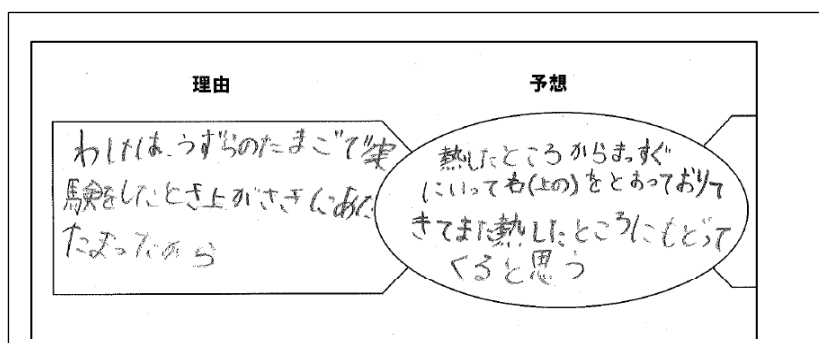 理由
わたしは、うずらのたまごで実
験をしたとき上がさきにあた
たまったから
予想
熱したところからまっすぐ
にいって右(上の)をとおっており
てきてまた熱したところにもどって
くると思う